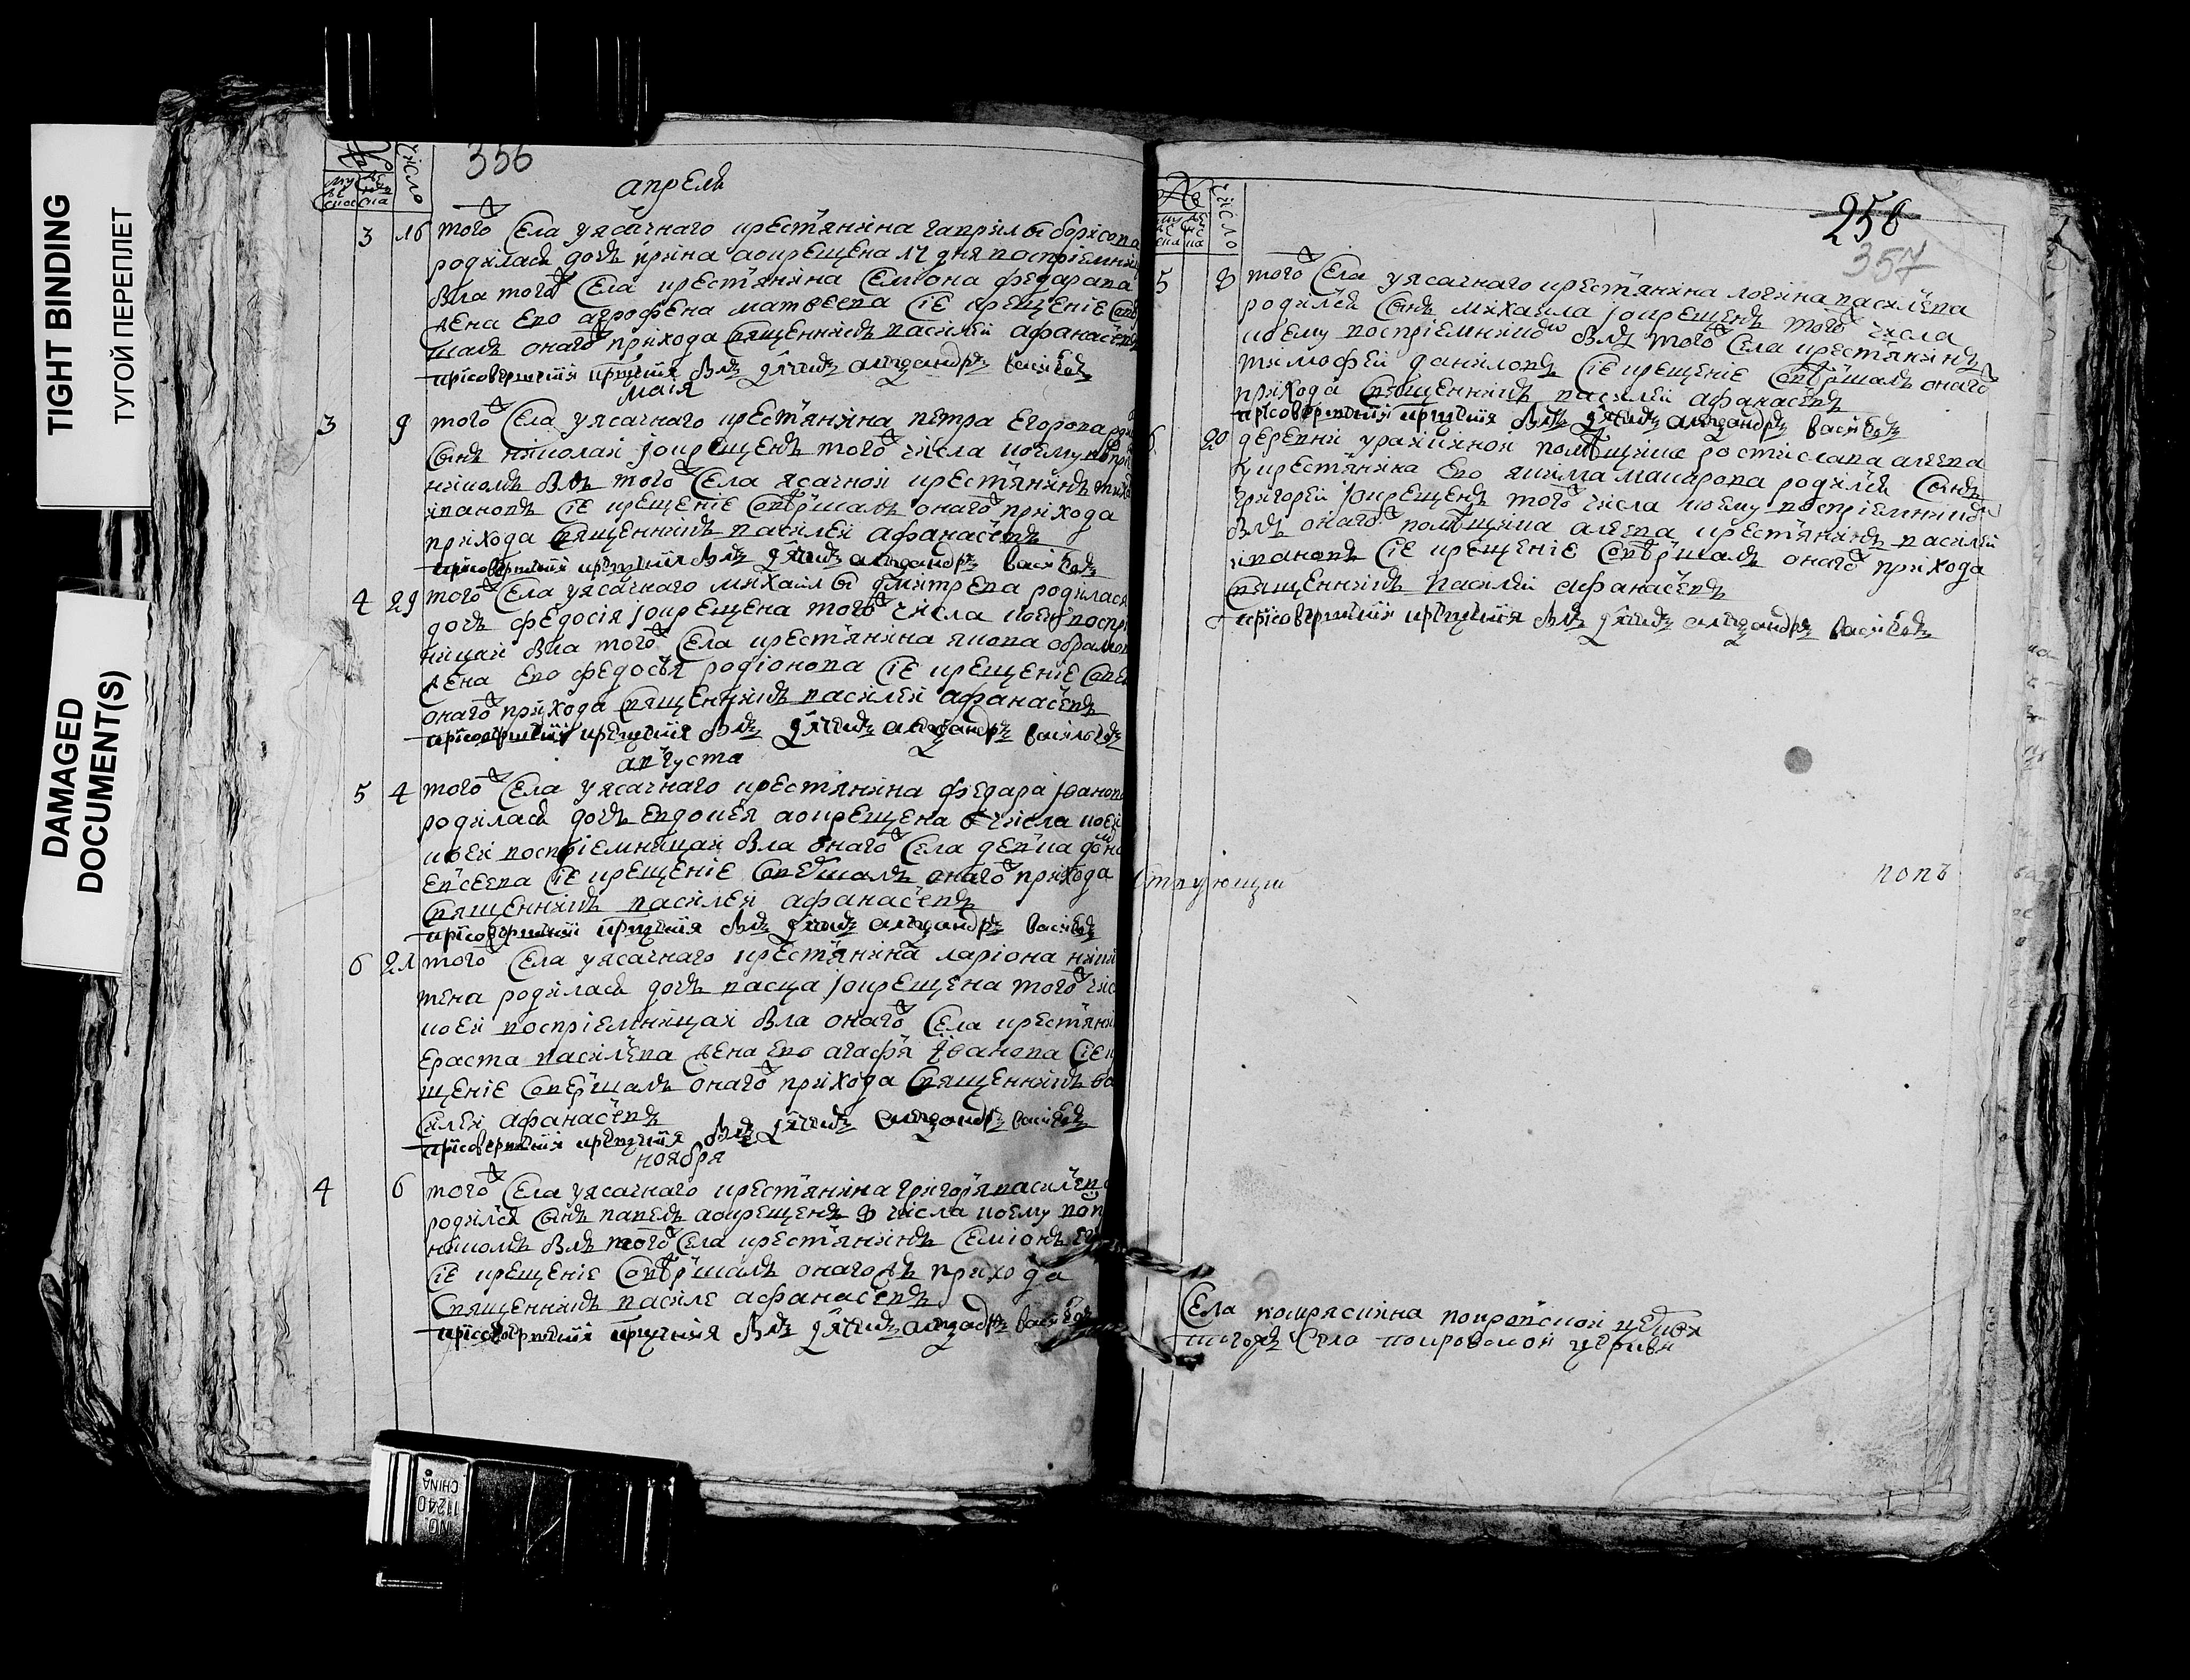 TIGHT BINDING
ТУГОЙ ПЕРЕПЛЕТ
DAMAGED
DOCUMENT(S)
число
356
апрель
3 16 того ж села у ясачнаго крестьянина гаврилы борисова
родилась дочь ирина а окрещена 17 дня восприемни
была того ж села крестьянина семиона федарава
жена ево агрофена матвеева сіе крещеніе
шалъ онаго ж прихода священникъ василей афанасьевъ
при совершеніи крещенія былъ дьячекъ александръ васильевъ
маія
3 9 того ж села у ясачнаго крестьянина петра егорова
сынъ николай і окрещенъ того ж числа коему
никомъ былъ того ж села ясачной крестьянинъ
ивановъ сіе крещеніе совершалъ онаго ж прихода
прихода священникъ василей афанасьевъ
при совершеніи крещенія былъ дьячекъ александръ васильевъ
4 29 того ж села у ясачнаго михайлы дмитрева родилася
дочь федосія і окрещена того ж числа коей
ницай была того ж села крестьянина якова
жена ево федосья родіонова сіе крещеніе
онаго ж прихода священникъ василей афанасьевъ
при совершеніи крещенія былъ дьячекъ александръ васильевъ
августа
5 4 того ж села у ясачнаго крестьянина федара іванова
родилась дочь евдокея а окрещена 6 числа коей
коей восприемницай была онаго ж села девка
евсеева сіе крещеніе совершалъ онаго ж прихода
священникъ василей афанасьевъ
при совершеніи крещенія былъ дьячекъ александръ васильевъ
6 21 того ж села у ясачнаго крестьянина ларіона
тена родилась дочь васца і окрещена того ж
коей восприемницай была онаго ж села
ераста васильева жена ево агафья іванова сіе
щеніе совершалъ онаго ж прихода священникъ ва
силей афанасьевъ
при совершеніи крещенія былъ дьячекъ александръ васильевъ
ноября
4 6 того ж села у ясачнаго крестьянина григорья васильева
родился сынъ павелъ а окрещенъ 8 числа коему
никомъ былъ того ж села крестьянинъ семіонъ
сіе крещеніе совершалъ онаго жъ прихода
священникъ василе афанасьевъ
при совершеніи крещенія былъ дьячекъ александръ васильевъ
число
256
357
5 8 того ж села у ясачнаго крестьянина логина васильева
родился сынъ михаила і окрещенъ того ж числа
коему восприемникомъ былъ того ж села крестьянинъ
тимофей даниловъ сіе крещеніе совершалъ онаго ж
прихода священникъ василей афанасьевъ
при совершеніи крещенія былъ дьячекъ александръ васильевъ
6 20 деревни помещика ростислава
у крестьянина ево якима макарова родился сынъ
григорей і окрещенъ того ж числа коему восприемникомъ
былъ онаго ж помещика крестьянинъ василей
ивановъ сіе крещеніе совершалъ онаго ж прихода
священникъ василей афанасьевъ
при совершеніи крещенія былъ дьячекъ александръ васильевъ
ствующий попъ
села покровской церкви
тогожъ села покровской церкви
NO.
11240
CHINA